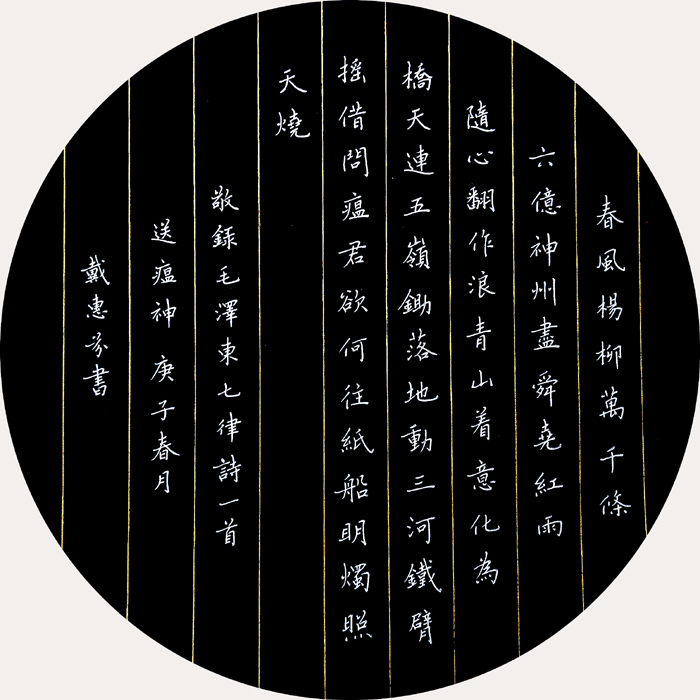 春風楊柳萬千條
六億神州盡舜堯紅雨
隨心翻作浪青山着意化為
橋天連五嶺鋤落地動三河鐵臂
搖借問瘟君欲何往紙船明燭照
天燒
敬録毛澤東七律詩一首
送瘟神 庚子春月
戴惠芬書